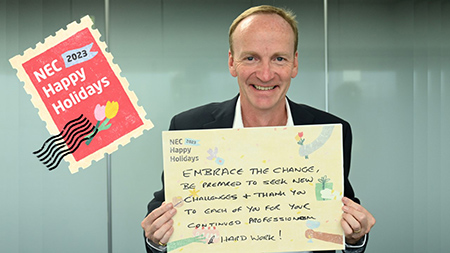 NEC 2023
Happy
Holidays
NEC 2023
Happy
Holidays
EMBRACE THE CHANGE,
BE PREPARED TO SEEK NEW
CHALLENGES & THANK YOU
TO EACH OF YOU FOR YOUR
CONTINUED PROFESSIONALISM
& HARD WORK!